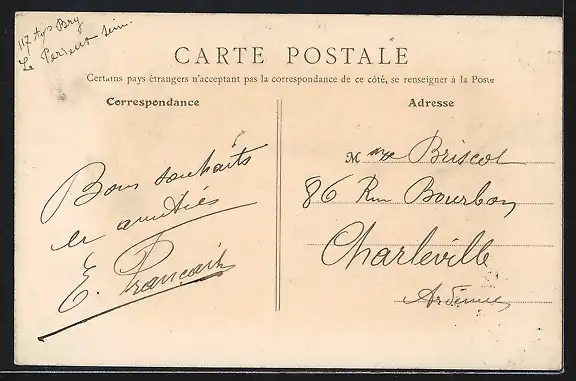 117 Av Bry
Le Perreux Seine
CARTE POSTALE
Certains pays étrangers n'acceptant pas la correspondance de ce côté, se renseigner à la Poste
Correspondance
Bons souhaits
et amitiés
E. Français
Adresse
Mme Briscot
86 Rue Bourbon
Charleville
Ardennes